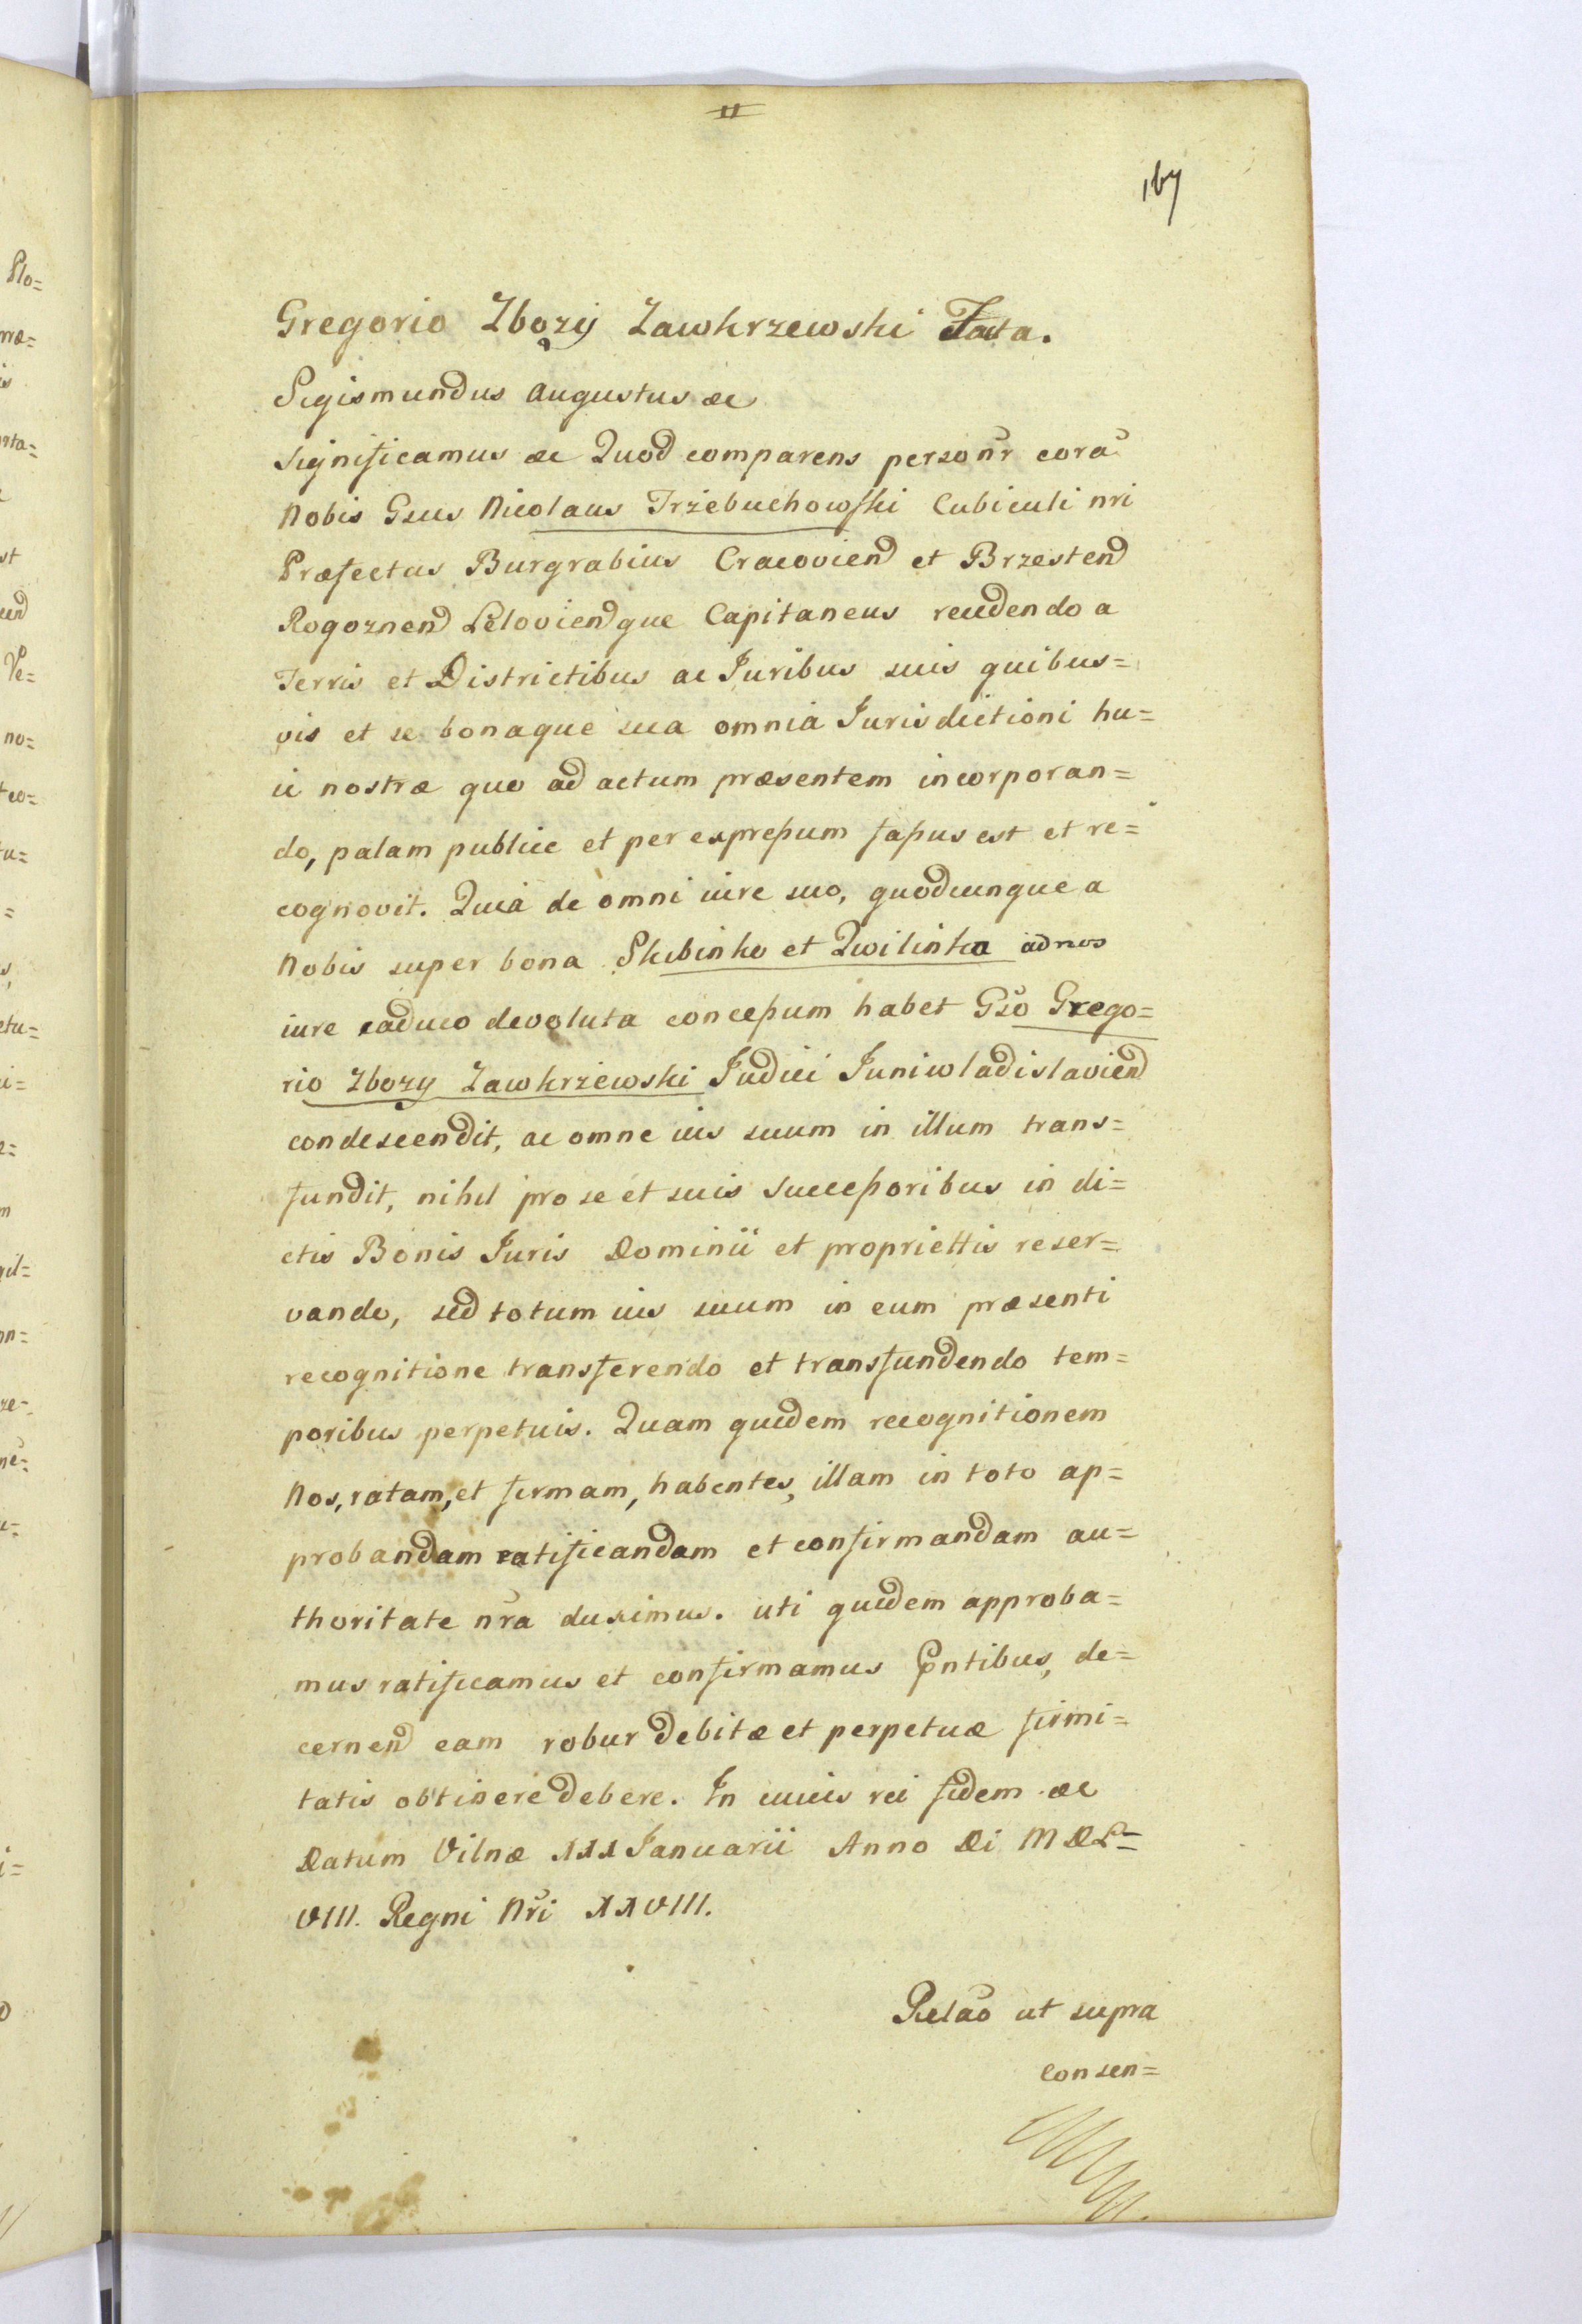 II
167
Gregorio Zbozÿ Zawkrzewski Facta.
Sigismundus Augustus &c
Significamus &c Quod comparens personr̃ corã
Nobis Gsus Nicolaus Trzebuchowski Cubiculi nri
Præfectus Burgrabius Cracoviend et Brzestend
Rogoznend Leloviendque Capitaneus recedendo a
Terris et Districtibus ac Juribus suis quibus=
vis et se bonaque sua omnia Jurisdictioni hu=
ic nostræ quo ad actum præsentem incorporan=
do, palam publice et per expressum fassus est et re=
cognovit. Quia de omni iure suo, quodcunque a
Nobis super bona Skibinko et Qwilinko ad nos
iure caduco devoluta concessum habet Gs̃o Grego=
rio Zbozy Zawkrzewski Judici Juniwladislaviend
condescendit, ac omne ius suum in illum trans=
fundit, nihil pro se et suis successoribus in di=
ctis Bonis Juris Dominii et propriettis reser=
vando, sed totum ius suum in eum præsenti
recognitione transferendo et transfundendo tem=
poribus perpetuis. Quam quidem recognitionem
Nos, ratam, et firmam, habentes, illam in toto ap=
probandam ratificandam et confirmandam au=
thoritate nr̃a duximus. uti quidem approba=
mus ratificamus et confirmamus Pntibus, de=
cernend eam robur debitæ et perpetuæ firmi=
tatis obtinere debere. In cuius rei fidem &c
Datum Vilnæ XXX Januarii Anno Di MDL=
VIII. Regni Nr̃i XXVIII.
Relaõ ut supra
Consen=
Plo=